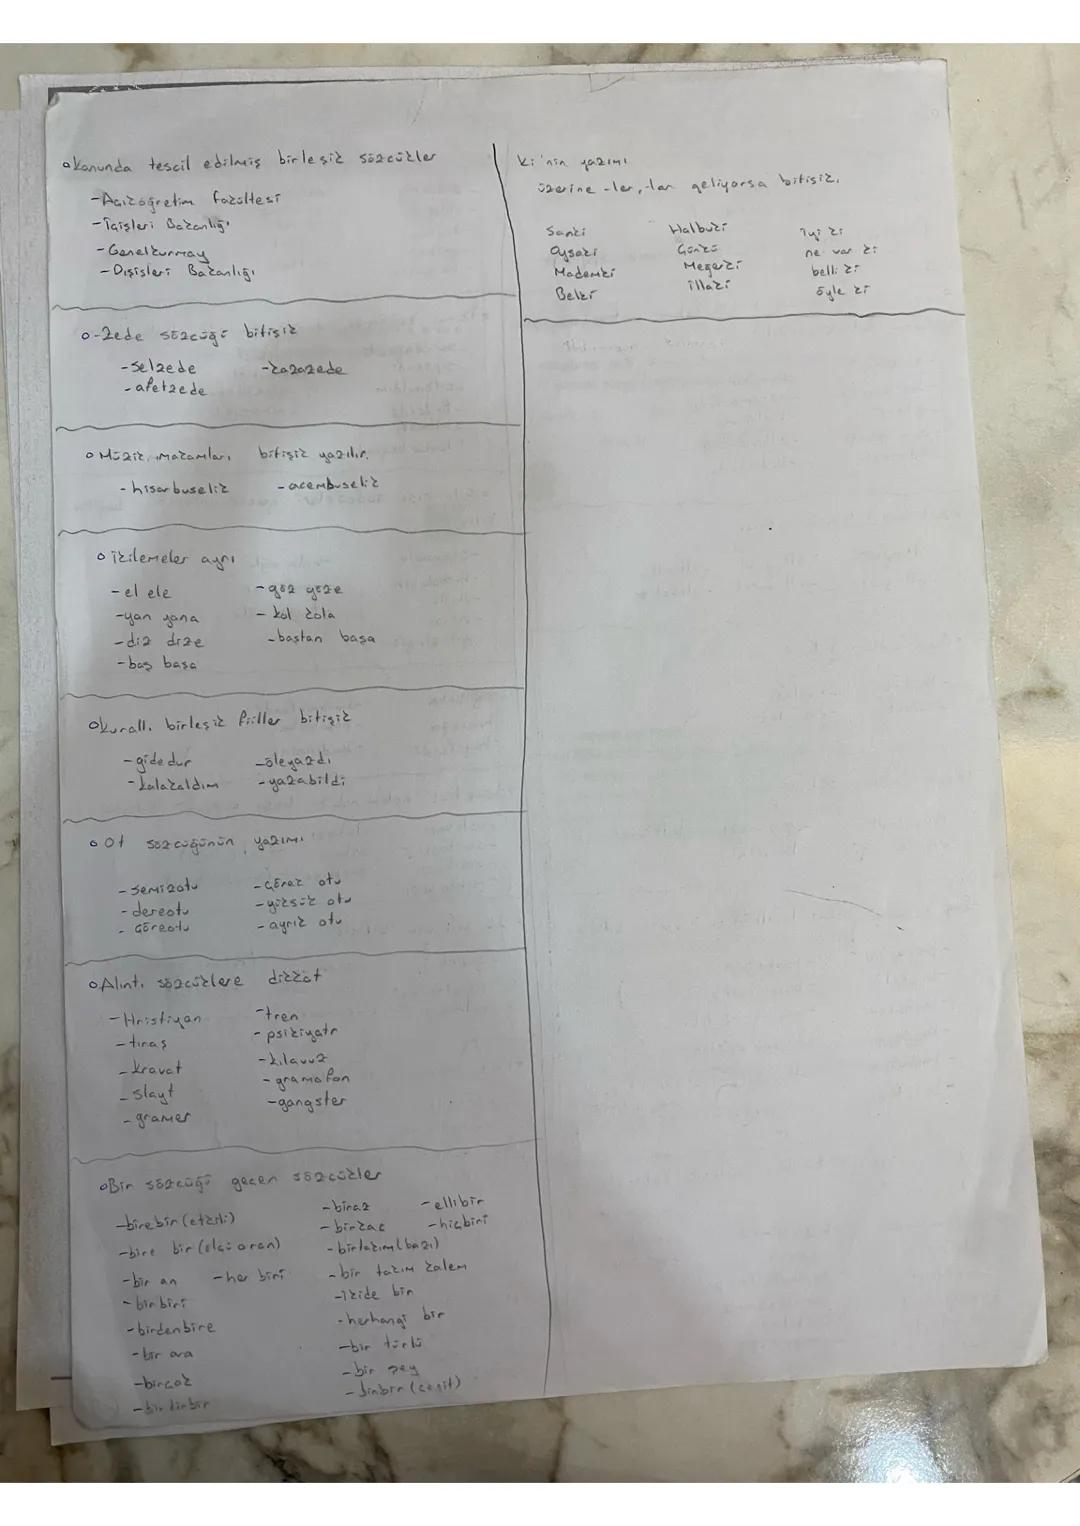 Kanunda tescil edilmiş birleşik sözcükler
-Açıköğretim Fakültesi
-İçişleri Bakanlığı
-Genelkurmay
-Dışişleri Bakanlığı
-Zede sözcüğü bitişik
-selzede -kazazede
-afetzede
Müzik makamları bitişik yazılır.
-hisarbuselik -acembuselik
İkilemeler ayrı
-el ele -göz göze
-yan yana -kol kola
-diz dize -baştan başa
-baş başa
Kurallı birleşik fiiller bitişik
-gidedur -öleyazdı
-kalakaldım -yazabildi
Ot sözcüğünün yazımı
-semizotu -çörek otu
-dereotu -yüksük otu
-çöreotu -ayrık otu
Alıntı sözcüklere dikkat
-Hristiyan -tren
-tıraş -psikiyatr
-kravat -kılavuz
-slayt -gramofon
-gramer -gangster
Bir sözcüğü geçen sözcükler
-birebir (etkili) -biraz -ellibir
-bire bir (ölçü oran) -birkaç -hiçbiri
-bir an -her biri -birtakım (bazı)
-birbiri -bir takım kalem
-birdenbire -ikide bir
-bir ara -herhangi bir
-birçok -bir türlü
-bir şey
-binbir (çeşit)
ki'nin yazımı
üzerine -ler, -lar geliyorsa bitişik.
Sanki Halbuki iyi ki
Oysaki Çünkü ne var ki
Mademki Meğerki belli ki
Belki illaki öyle ki